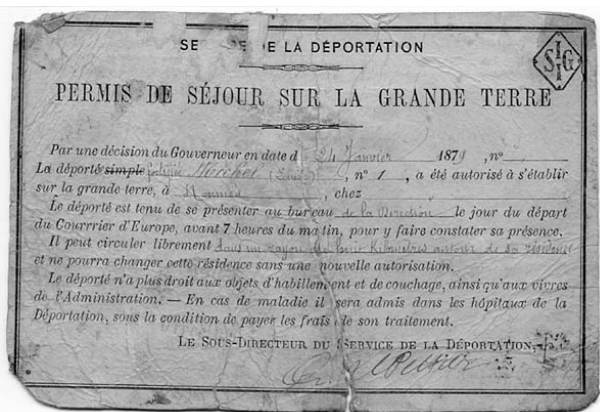 SE DE LA DÉPORTATION
SIGI
PERMIS DE SÉJOUR SUR LA GRANDE TERRE
Par une décision du Gouverneur en date d 24 Janvier 1879, n°
La déporté simple Michel (Louise), n° 1, a été autorisé à s'établir
sur la grande terre, à Nouméa, chez
Le déporté est tenu de se présenter au bureau de la Direction le jour du départ
du Courrrier d'Europe, avant 7 heures du matin, pour y faire constater sa présence.
Il peut circuler librement dans un rayon de Kilomètres autour de sa résidence
et ne pourra changer cette résidence sans une nouvelle autorisation.
Le déporté n'a plus droit aux objets d'habillement et de couchage, ainsi qu'aux vivres
de l'Administration. — En cas de maladie il sera admis dans les hôpitaux de la
Déportation, sous la condition de payer les frais de son traitement.
LE SOUS-DIRECTEUR DU SERVICE DE LA DÉPORTATION,